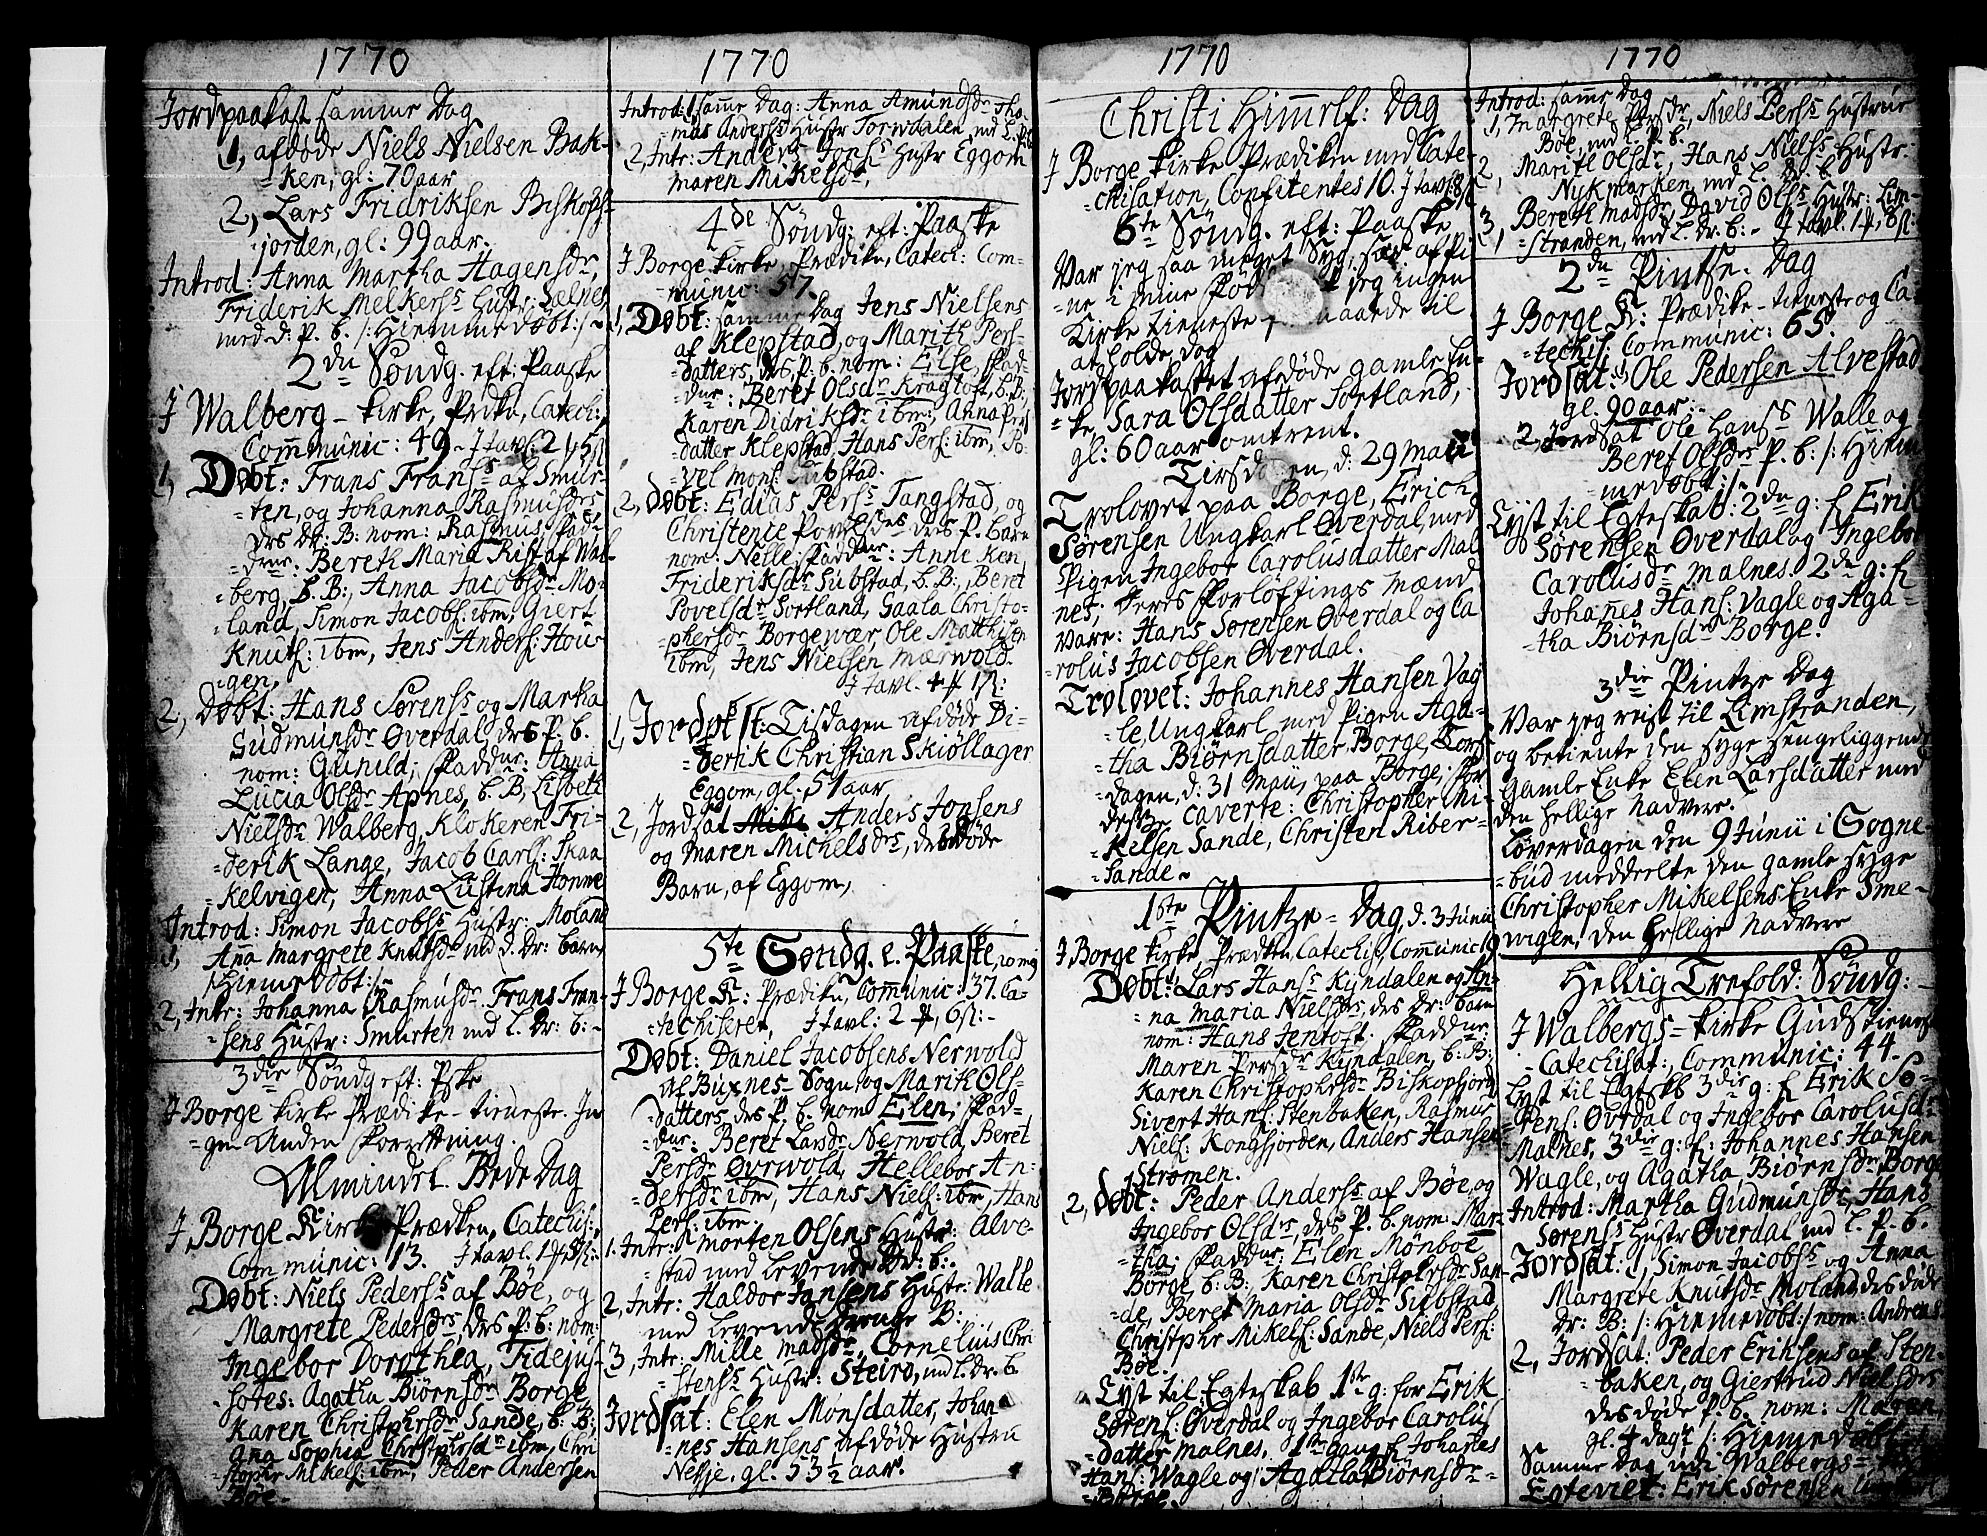 1770
Jordpaakast samme Dag
1, afdøde Niels Nielsen Bak-
-ken, gl: 70 aar
2, Lars Fridriksen Biskops-
jorden, gl: 99 aar.
Introd: Anna Martha Hagensdr,
Friderik Melkers: Hustr: Sælnes
med d: P. b. /: Hiemmedøbt :/
2den Søndg. eft: Paaske
I Walberg - Kirke, Catech:,
Communic: 49 - I tavl: 2
1, Døbt: Frans Frans: af Smur-
-ten, og Johanna Rasmusdrs
drs dr: B: nom: Rasmus,
Bereth Maria Rist af Wal-
-berg, b. B:, Anna Jacobsdr Mo-
-land, Simon Jacobs: ibm, Giert
Knuts: ibm, Jens Anders: Hou-
-gen.
2, Døbt: Hans Sørens: og Martha
Gudmunsdr Øverdal drs P. b.
nom: Gunild; Faddur: Anna
Lucia Olsdr Apnes, b. B, Lisbeth
Nielsdr Walberg, Klokeren Fri-
-derik Lange, Jacob Carls: Skaa
-kelvigen, Anna Lustina Honne
Introd: Simon Jacobs: Hustr: Moland
1, Anna Margrete Knutsdr md d. dr: barn
/: Hiemedøbt :/
2, Intr: Johanna Rasmusdr Frans Fran-
-sens Hustr: Smurten md l. dr: b:-
3die Søndg eft: Pske
I Borge Kirke Prædike-tieneste. In
-gen Anden Forretning.
Almindel. Bede Dag
I Borge Kirke Prædken, Catechis:,
Communic: 13. I tavl:
Døbt: Niels Peders: af Bøe, og
Margrete Pedersdrs, drs P: b: nom:
Ingebor Dorothea, Fidejus-
-sores: Agatha Biørnsdr Borge
Karen Christphrsdr Sande, b: B:,
Ana Sophia Christphrsdr ibm, Chri
-stopher Mikels: ibm, Peder Andersen
Bøe.
1770
Introd: 1, samme Dag: Anna Amundsdr Tho-
mas Anders: Hustr Torwdalen, md L.
2, Intr: Anders Jons: Hustr Eggom
Maren Mikelsdr,
4de Søndg: eft: Paaske
I Borge Kirke, Prædike, Catech: Com-
munic: 57.
1, Døbt: samme Dag Jens Nielsens
af Klepstad, og Marith Pers-
-datters, drs P. b. nom: Else, Fad-
-dur: Beret Olsdr Kragtoft, b. B:,
Karen Didriksdr ibm:, Anna Pers
datter Klepstad, Hans Pers: ibm, Po-
-vel Mons: Substad.
2, Døbt: Edias Pers: Tangstad, og
Christence Povelsdrs drs P. barn
nom: Nelle, Faddur: Anne Ken
Frideriksdr Substad, b. B:, Beret
Povelsdr Sortland, Gaala Christo-
phersdr Borgewær, Ole Matthisen
ibm, Jens Nielsen Mærwold.
I tavl.
1, Jordpkst: Tisdagen afdøde Di-
derik Christian Skiøllager
Eggom, gl. 51 aar
2, Jordsat Anders Jonsens
og Maren Michelsdrs, døde
Barn, af Eggom,
5te Søndg. e. Paaske,
I Borge K: Prædike, Communic: 37. Ca-
-techiseret, I tavl: 2
Døbt: Daniel Jacobsens Nerwold
af Buxnes Sogn, og Marith Ols-
datters, drs P. b. nom Elen; Fad-
-dur: Beret Larsdr Nerwold, Beret
Persdr Øvrwold, Hellebor An-
-dersdr ibm, Hans Niels: ibm, Hans
Pers: ibm.
1. Intr: Morten Olsens Hustr: Alve-
-stad med levende Dr: b:.
2, Intr: Haldor Jansens Hustr: Walle
med levende B:
3, Intr: Mille Madsdr, Cornelius Chri
-stens: Hustr: Steiro, md l. dr. b
Jordsat: Elen Monsdatter, Johan
-nes Hansens afdøde Hustru
Nesje, gl. 53½ aar.
1770
Christi Himmelf: Dag
I Borge Kirke Prædiken med Cate-
-chisation, Confitentes 10. I tavl:
6te Søndg. eft: Paaske
Var jeg saa meget Syg, af Pi-
-ne i mine jeg ingen
Kirke tieneste til
at holde, dog
Jordpaakastet afdøde gamle En-
-ke, Sara Olsdatter Sortland,
gl: 60 aar omtrent.
Tirsdagen, d: 29 Maii
Trolovet paa Borge, Erich
Sørensen Ungkarl Øverdal, med
Pigen Ingebor Carolusdatter Mal-
nes; deres Forløftings Mænd
Vare: Hans Sørensen Øverdal og Ca
-rolus Jacobsen Øverdal.
Trolovet: Johannes Hansen Vag
-le, Ungkarl med Pigen Aga-
-tha Biørnsdatter Borge, Tors-
-dagen, d: 31 Maii, paa Borge, for
disse caverte: Christopher Mi-
-kelsen Sande, Christen Riber-
-Sande -
1ste Pintze-Dag, d. 3 Junii
I Borge Kirke, Prædken, Catechis, Communic: 19
Døbt: Lars Hans: Kyndalen og An-
-na Maria Nielsdrs, drs Dr: barn
nom: Hans Jentoft. Faddur:
Maren Persdr Kyndalen, b: B:
Karen Christophersdr Biskopsjord
Sivert Hans: Stenbaken, Rasmus
Niels: Kongsjorden, Anders Hansen
Strømen.
2, Døbt: Peder Anders: af Bøe, og
Ingebor Olsdrs, drs P. b. nom: Mar-
tha; Faddur: Elen Mønboe
Borge, b: B: Karen Christphrsdr San-
de, Beret Maria Olsdr Substad
Christpher Mikels: Sande, Niels Pers:
Bøe.
Lyst til Egteskab 1ste g: for Erik
Sørens: Øverdal og Ingebor Carolus
datter Malnes, 1ste gang f: Johannes
Hans: Wagle og Agatha Biørnsdr-
Borge.
1770
Introd: samme Dag
1, Margrete Persdr, Niels Pers: Hustrue
Bøe, md l. P. b.
2, Marith Olsdr, Hans Niels: Hustr:
Nykmarken, md L. Dr. b.
3, Bereth Madsdr, David Ols: Hustr: Lim-
-stranden, md l. dr. b: - I tavl.
2den Pintse-Dag
I Borge K: Prædike-tieneste og Ca-
-techis, Communic: 65.
Jordsat: Ole Pedersen Alvestad
gl. 90 aar.
2, Jordsat Ole Hans: Walle og
Beret Olsdrs P. b: /: Hiem
medøbt :/
Lyst til Egteskab: 2den g: f Erik
Sørensen Øverdal og Ingebor
Carolusdr Malnes. 2den g: f
Johannes Hans: Vagle og Aga-
-tha Biørnsdr Borge.
3die Pintze Dag
Var jeg reist til Limstranden,
og betiente den syge sengeliggende
gamle Enke Elen Larsdatter med
den hellige Nadvere.
Løverdagen den 9 Junii i Sogne-
-bud meddeelte den gamle syge
Christopher Mikelsens Enke Sme-
-vigen, den hellige Nadvere
Hellig Trefold: Søndg:
I Walbergs-Kirke Gudstieneste
Catechisat:, Communic: 44.
Lyst til Egteskb 3die g: f Erik Sø-
-rens: Øverdal og Ingebor Carolusdr
Malnes, 3die g: f: Johannes Hansen
Wagle, og Agatha Biørnsdr Borge
Introd: Martha Gudmunsdr Hans
Sørens: Hustr Øverdal md l. P. b.
Jordsat: 1, Simon Jacobs: og Anna
Margrete Knutsdr Moland drs døde
Dr: B: /: Hiemedøbt :/ nom: Andreas
2, Jordsat: Peder Eriksens af Sten-
-baken, og Giertrud Nielsdrs
drs døde P. b. nom: Maren,
gl. 4 dage /: Hiemedøbt :/
Samme Dag udi Walbergs-
Egteviet: Erik Sørensen